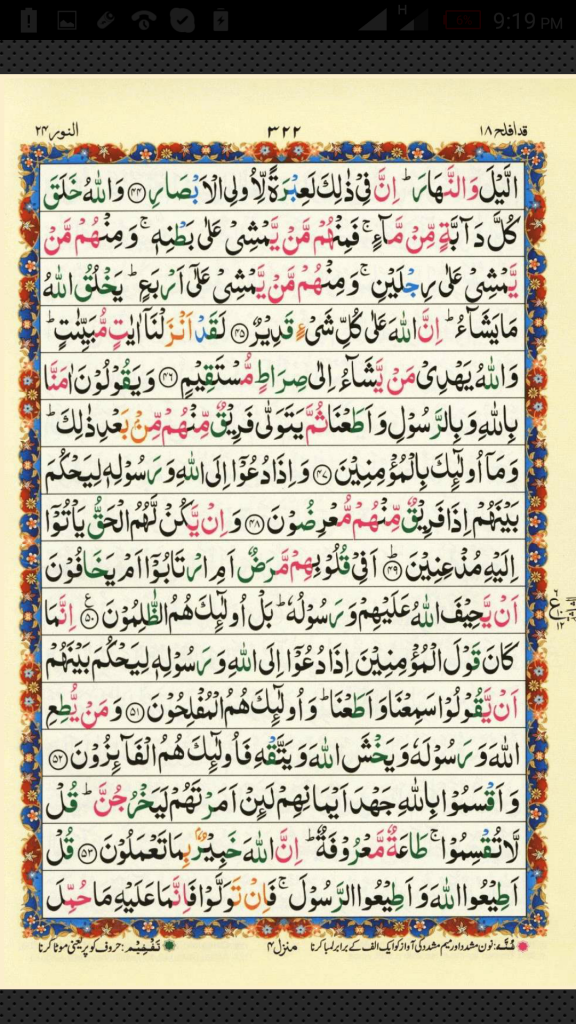 H 9:19 PM
قد افلح ۱۸ ۳۲۲ النور ۲۴
الَّیۡلَ وَالنَّہَارَ ؕ اِنَّ فِیۡ ذٰلِکَ لَعِبۡرَۃً لِّاُولِی الۡاَبۡصَارِ ﴿۴۴﴾ وَاللّٰہُ خَلَقَ
کُلَّ دَآبَّۃٍ مِّنۡ مَّآءٍ ۚ فَمِنۡہُمۡ مَّنۡ یَّمۡشِیۡ عَلٰی بَطۡنِہٖ ۚ وَمِنۡہُمۡ مَّنۡ
یَّمۡشِیۡ عَلٰی رِجۡلَیۡنِ ۚ وَمِنۡہُمۡ مَّنۡ یَّمۡشِیۡ عَلٰۤی اَرۡبَعٍ ؕ یَخۡلُقُ اللّٰہُ
مَا یَشَآءُ ؕ اِنَّ اللّٰہَ عَلٰی کُلِّ شَیۡءٍ قَدِیۡرٌ ﴿۴۵﴾ لَقَدۡ اَنۡزَلۡنَاۤ اٰیٰتٍ مُّبَیِّنٰتٍ ؕ
وَاللّٰہُ یَہۡدِیۡ مَنۡ یَّشَآءُ اِلٰی صِرَاطٍ مُّسۡتَقِیۡمٍ ﴿۴۶﴾ وَیَقُوۡلُوۡنَ اٰمَنَّا
بِاللّٰہِ وَبِالرَّسُوۡلِ وَاَطَعۡنَا ثُمَّ یَتَوَلّٰی فَرِیۡقٌ مِّنۡہُمۡ مِّنۡۢ بَعۡدِ ذٰلِکَ ؕ
وَمَاۤ اُولٰٓئِکَ بِالۡمُؤۡمِنِیۡنَ ﴿۴۷﴾ وَاِذَا دُعُوۡۤا اِلَی اللّٰہِ وَرَسُوۡلِہٖ لِیَحۡکُمَ
بَیۡنَہُمۡ اِذَا فَرِیۡقٌ مِّنۡہُمۡ مُّعۡرِضُوۡنَ ﴿۴۸﴾ وَاِنۡ یَّکُنۡ لَّہُمُ الۡحَقُّ یَاۡتُوۡۤا
اِلَیۡہِ مُذۡعِنِیۡنَ ﴿ؕ۴۹﴾ اَفِیۡ قُلُوۡبِہِمۡ مَّرَضٌ اَمِ ارۡتَابُوۡۤا اَمۡ یَخَافُوۡنَ
اَنۡ یَّحِیۡفَ اللّٰہُ عَلَیۡہِمۡ وَرَسُوۡلُہٗ ؕ بَلۡ اُولٰٓئِکَ ہُمُ الظّٰلِمُوۡنَ ﴿٪۵۰﴾ اِنَّمَا
کَانَ قَوۡلَ الۡمُؤۡمِنِیۡنَ اِذَا دُعُوۡۤا اِلَی اللّٰہِ وَرَسُوۡلِہٖ لِیَحۡکُمَ بَیۡنَہُمۡ
اَنۡ یَّقُوۡلُوۡا سَمِعۡنَا وَاَطَعۡنَا ؕ وَاُولٰٓئِکَ ہُمُ الۡمُفۡلِحُوۡنَ ﴿۵۱﴾ وَمَنۡ یُّطِعِ
اللّٰہَ وَرَسُوۡلَہٗ وَیَخۡشَ اللّٰہَ وَیَتَّقۡہِ فَاُولٰٓئِکَ ہُمُ الۡفَآئِزُوۡنَ ﴿۵۲﴾
وَاَقۡسَمُوۡا بِاللّٰہِ جَہۡدَ اَیۡمَانِہِمۡ لَئِنۡ اَمَرۡتَہُمۡ لَیَخۡرُجُنَّ ؕ قُلۡ
لَّا تُقۡسِمُوۡا ۚ طَاعَۃٌ مَّعۡرُوۡفَۃٌ ؕ اِنَّ اللّٰہَ خَبِیۡرٌۢ بِمَا تَعۡمَلُوۡنَ ﴿۵۳﴾ قُلۡ
اَطِیۡعُوا اللّٰہَ وَاَطِیۡعُوا الرَّسُوۡلَ ۚ فَاِنۡ تَوَلَّوۡا فَاِنَّمَا عَلَیۡہِ مَا حُمِّلَ
غُنَّہ: نون مشدد اور میم مشدد کی آواز کو ایک الف کے برابر لمبا کرنا منزل ۴ تَفْخِیْم: حروف کو پر یعنی موٹا کرنا